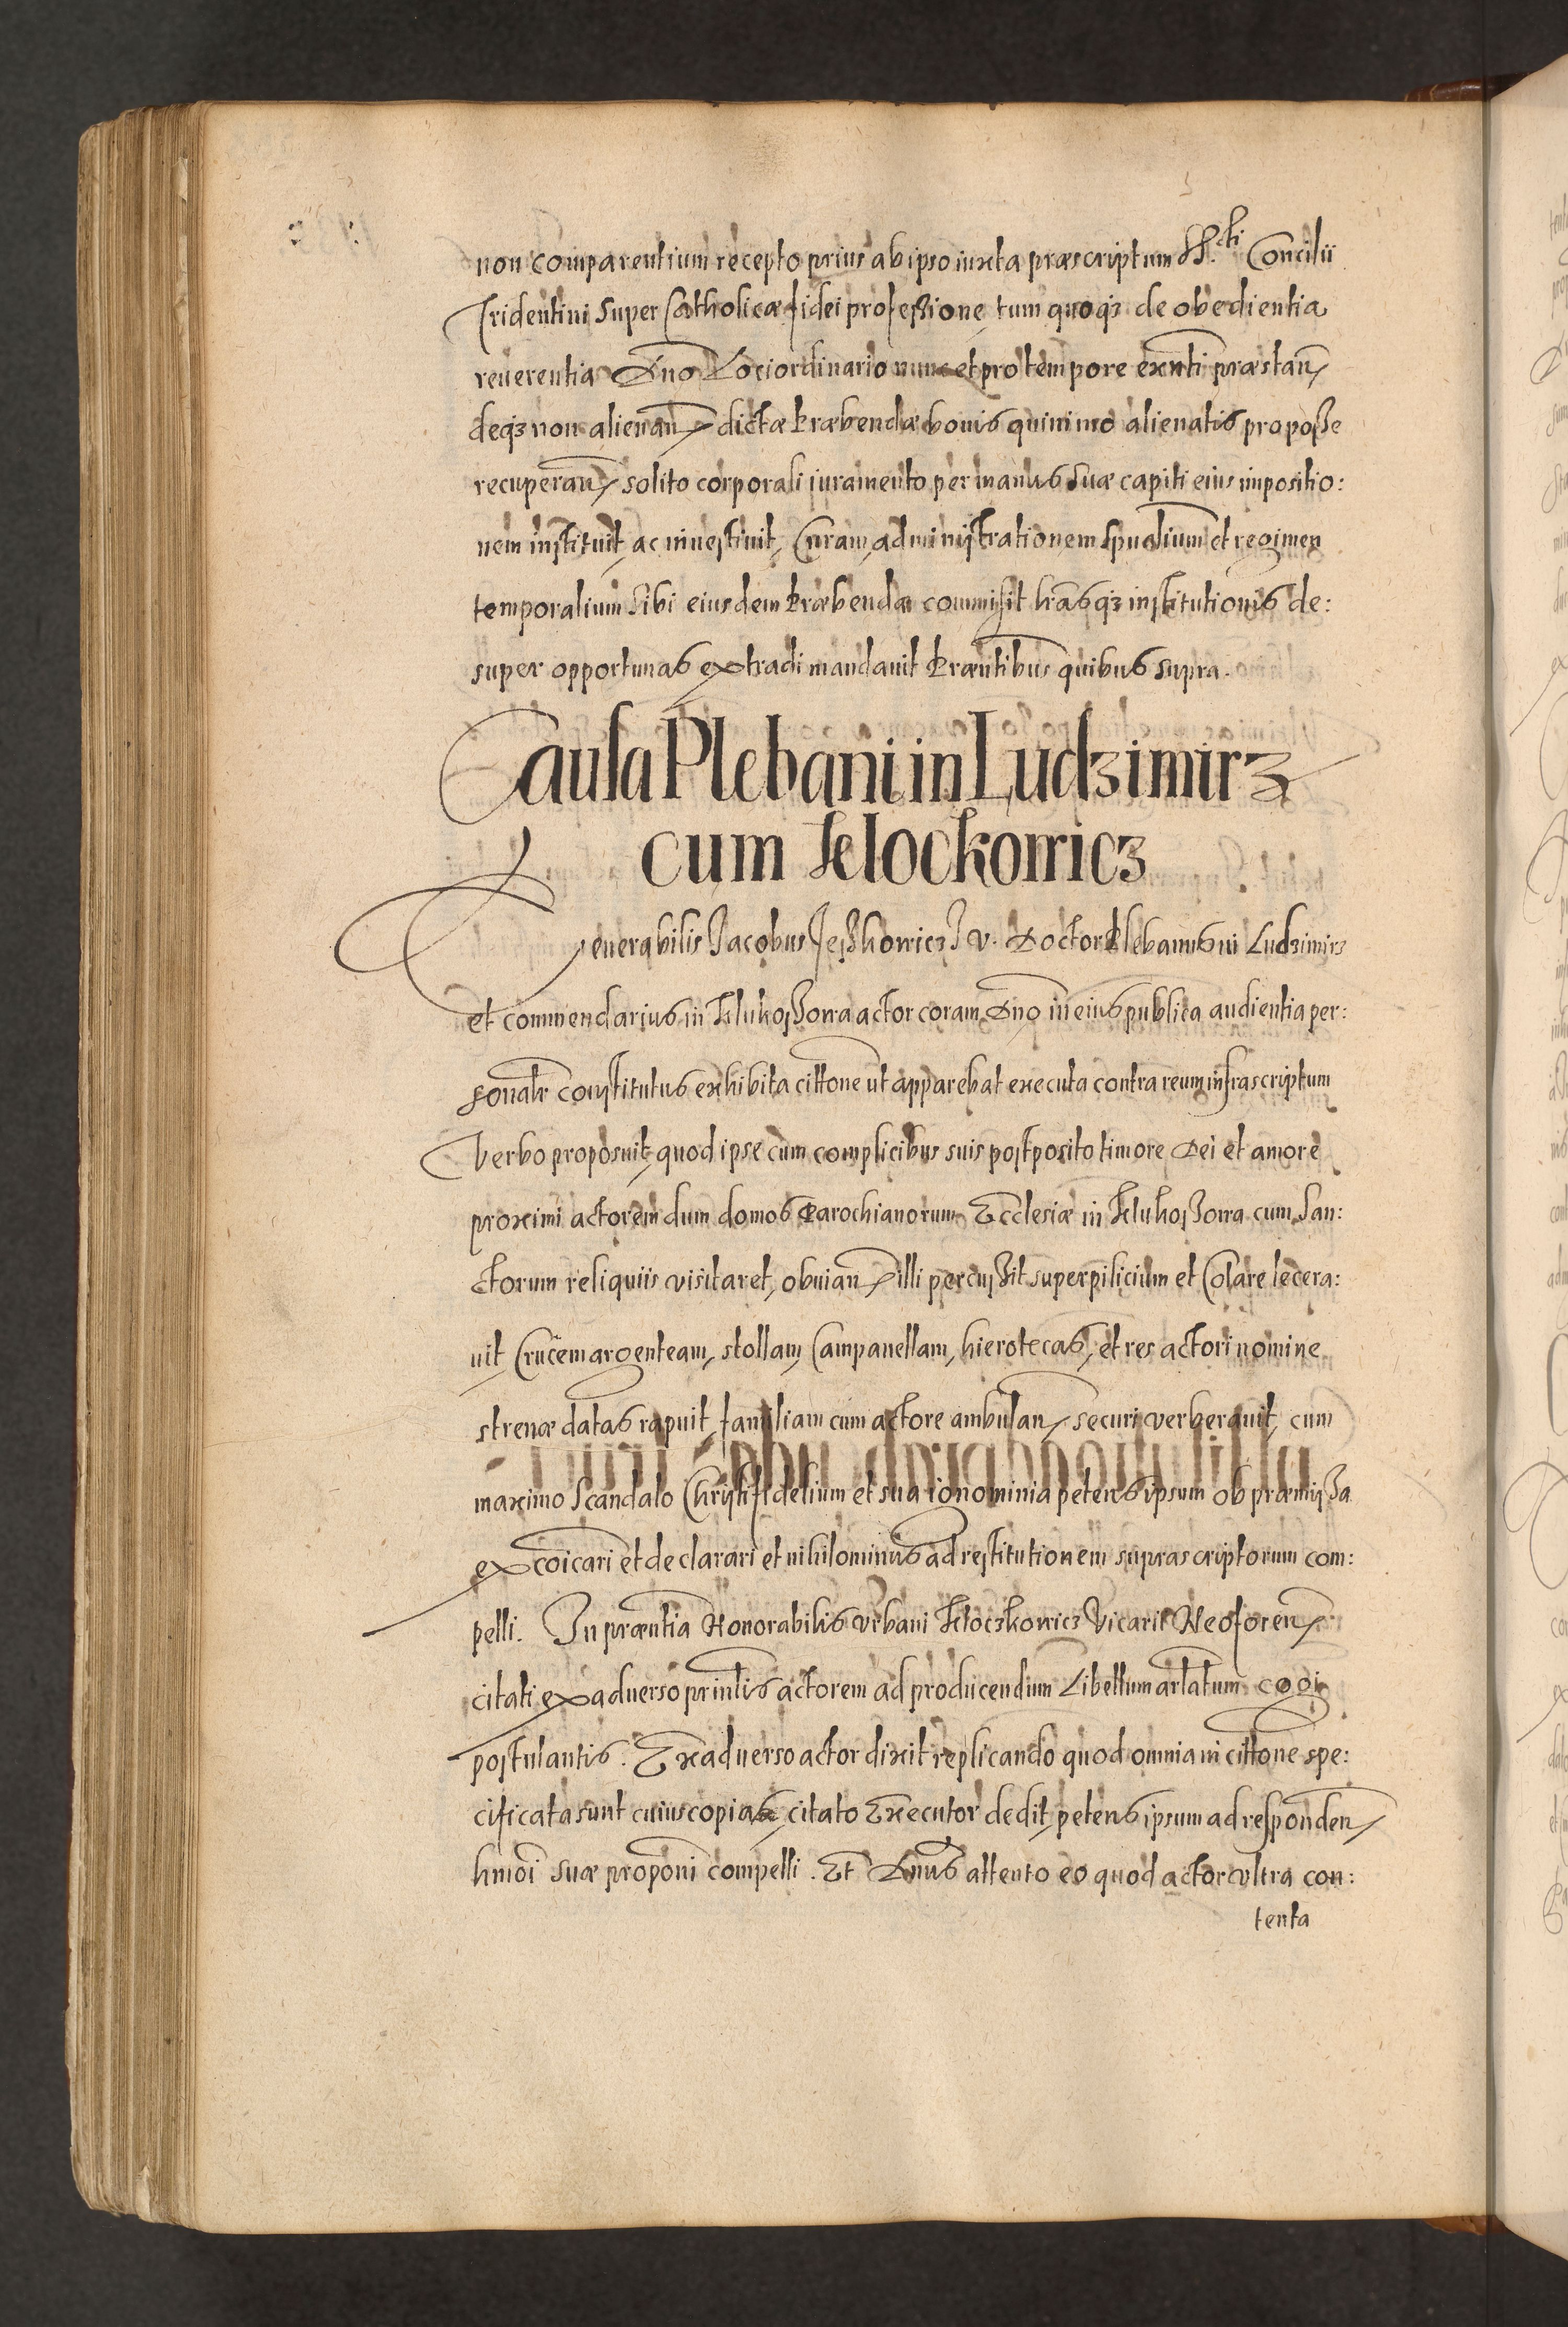 non comparentium recepto prius ab ipso iuxta præscriptum SS.cti Concilii
Tridentini super Catholicæ fidei professione, tum quoqꝫ de obedientia
reuerentia Dno Loci ordinario nunc et pro tempore exnti præstan
deqꝫ non alienan dictæ Præbendæ bonis quinimo alienatis pro posse
recuperan solito corporali iuramento per manus suæ capiti eius impositio:
nem instituit, ac inuestiuit, Curam, administrationem spualium et regimen
temporalium sibi eiusdem Præbendæ commisit lras qꝫ institutionis de:
super opportunas extradi mandauit Præntibus quibus supra.
Causa Plebani in Ludzimirz
cum Klockowicz
Venerabilis Jacobus Jeszkowicz J V. Doctor Plebanus in Ludzimirz
et commendarius in Klukoszowa actor coram Dno in eius publica audientia per:
sonalr constitutus exhibita cittone ut apparebat executa contra reum infrascriptum
Verbo proposuit, quod ipse cum complicibus suis postposito timore Dei et amore
proximi actorem dum domos Parochianorum Ecclesiæ in Klukoszowa cum San:
ctorum reliquiis visitaret, obuian illi percussit superpilicium et Colare lecera:
uit Crucem argenteam, stollam, Campanellam, hierotecas, et res actori nomine
strenæ datas rapuit, familiam cum actore ambulan securi verberauit, cum
maximo scandalo Christifidelium et sua ignominia petens ipsum ob præmissa
excoicari et declarari et nihilominus ad restitutionem suprascriptorum com:
pelli. In præntia Honorabilis Vrbani Kloczkowicz Vicarii Neoforen
citati ex aduerso prinlis actorem ad producendum Libellum arlatum cogi
postulantis. Ex aduerso actor dixit replicando quod omnia in cittone spe:
cificata sunt cuius copias citato Executor dedit, petens ipsum ad responden
hmoi suæ proponi compelli. Et Dnus attento eo quod actor vltra con:
tenta